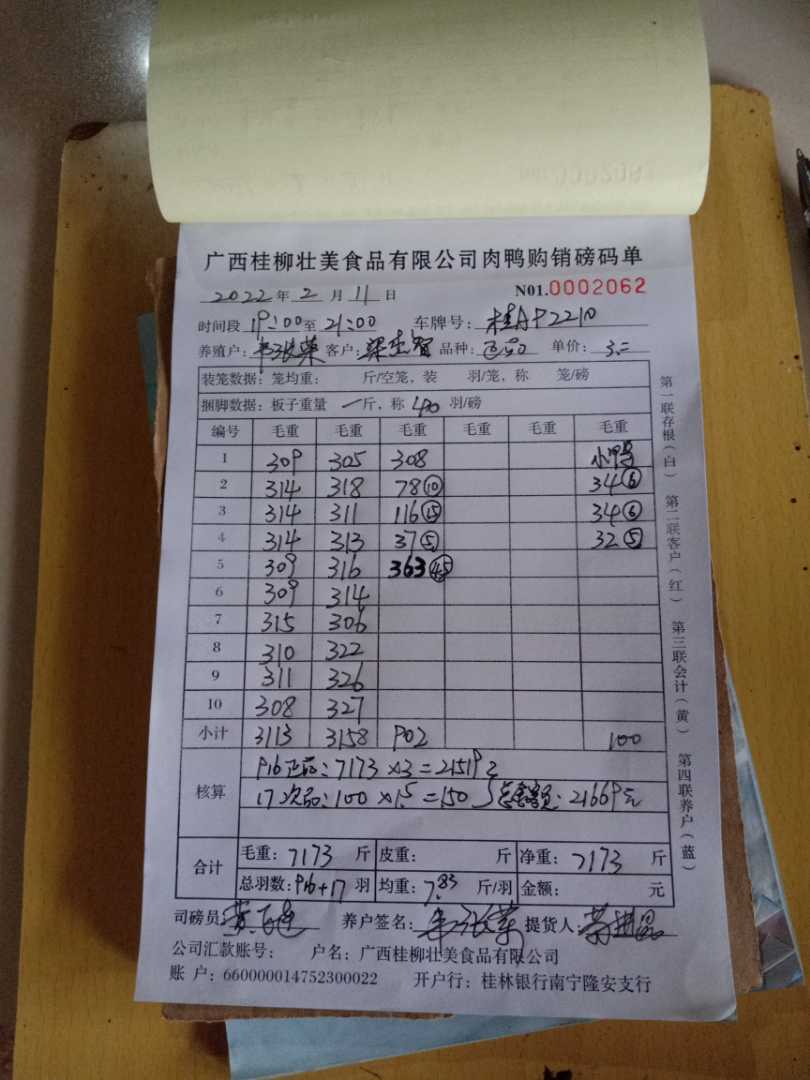 广西桂柳壮美食品有限公司肉鸭购销磅码单
2022年2月11日 N01.0002062
时间段19:00至21:00 车牌号:桂AP2210
养殖户: 客户:梁 品种: 单价:
装笼数据:笼均重: 斤/空笼,装 羽/笼,称 笼/磅
捆脚数据:板子重量 一斤,称 40 羽/磅
编号 毛重 毛重 毛重 毛重 毛重 毛重
1 309 305 308 小鸭
2 314 318 78⑩ 34⑥
3 314 311 116⑮ 34⑥
4 314 313 37⑤ 32⑤
5 309 316 363㊺
6 309 314
7 315 306
8 310 322
9 311 326
10 308 327
小计 3113 3158 902 100
核算
916正品:7173×3=21519元
17次品:100×1.5=150 总金额:21669元
合计 毛重:7173斤 皮重: 斤 净重:7173斤
总羽数:916+17羽 均重:7.83斤/羽 金额: 元
司磅员: 养户签名: 提货人:
公司汇款账号: 户名:广西桂柳壮美食品有限公司
账 户:660000014752300022 开户行:桂林银行南宁隆安支行
第一联存根(白) 第二联客户(红) 第三联会计(黄) 第四联养户(蓝)